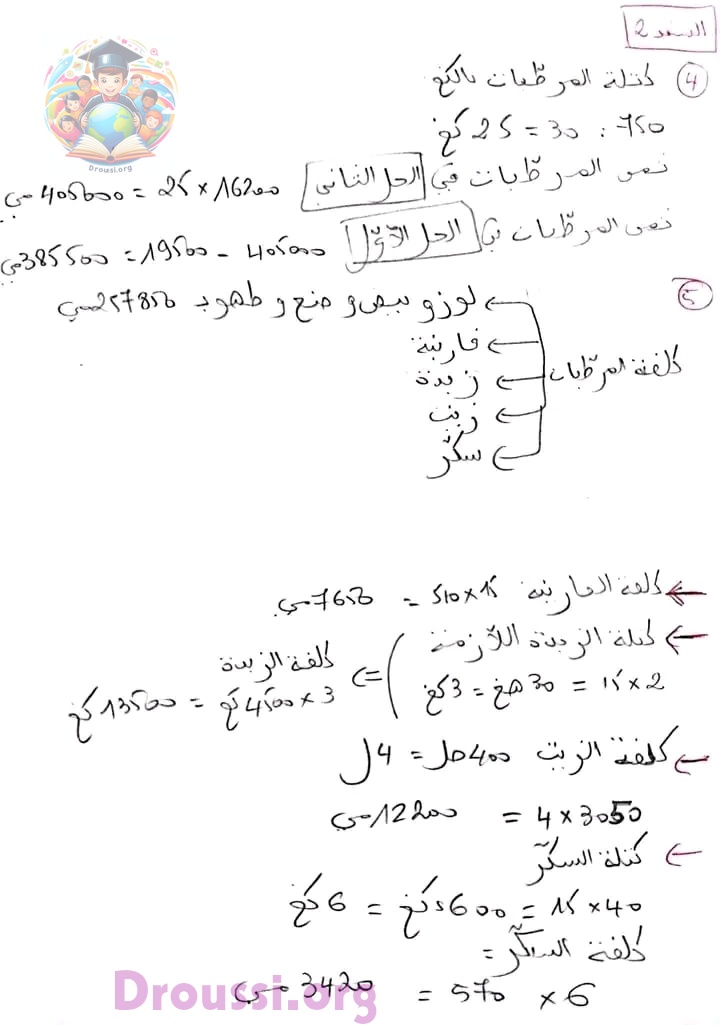 السند 2
Droussi.org
④ كتلة المرطبات بالكغ
750 : 30 = 25 كغ
ثمن المرطبات في الحل الثاني 16200 × 25 = 405000 مي
ثمن المرطبات في الحل الأوّل 405000 - 19500 = 385500 مي
⑤
كلفة المرطبات
← لوز و بيض و صنع و طهو 257850 مي
← فارينة
← زبدة
← زيت
← سكّر
← كلفة الفارينة 510 × 15 = 7650 مي
← كتلة الزبدة اللاّزمة
15 × 2 = 30 هغ = 3 كغ
<= كلفة الزبدة
4500 × 3 كغ = 13500 كغ
← كلفة الزيت 400 صل = 4 ل
4 × 3050 = 12200 مي
← كتلة السكّر
15 × 40 = 600 دكغ = 6 كغ
كلفة السكّر =
570 × 6 = 3420 مي
Droussi.org